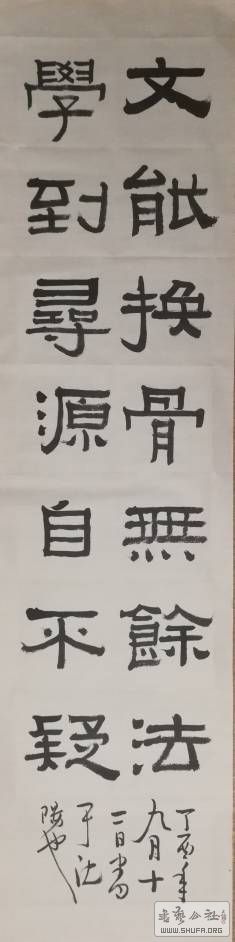 文能换骨無餘法
學到尋源自不疑
丁酉年
九月十
一日書
于沈
陽也
書藝公社
WWW.SHUFA.ORG